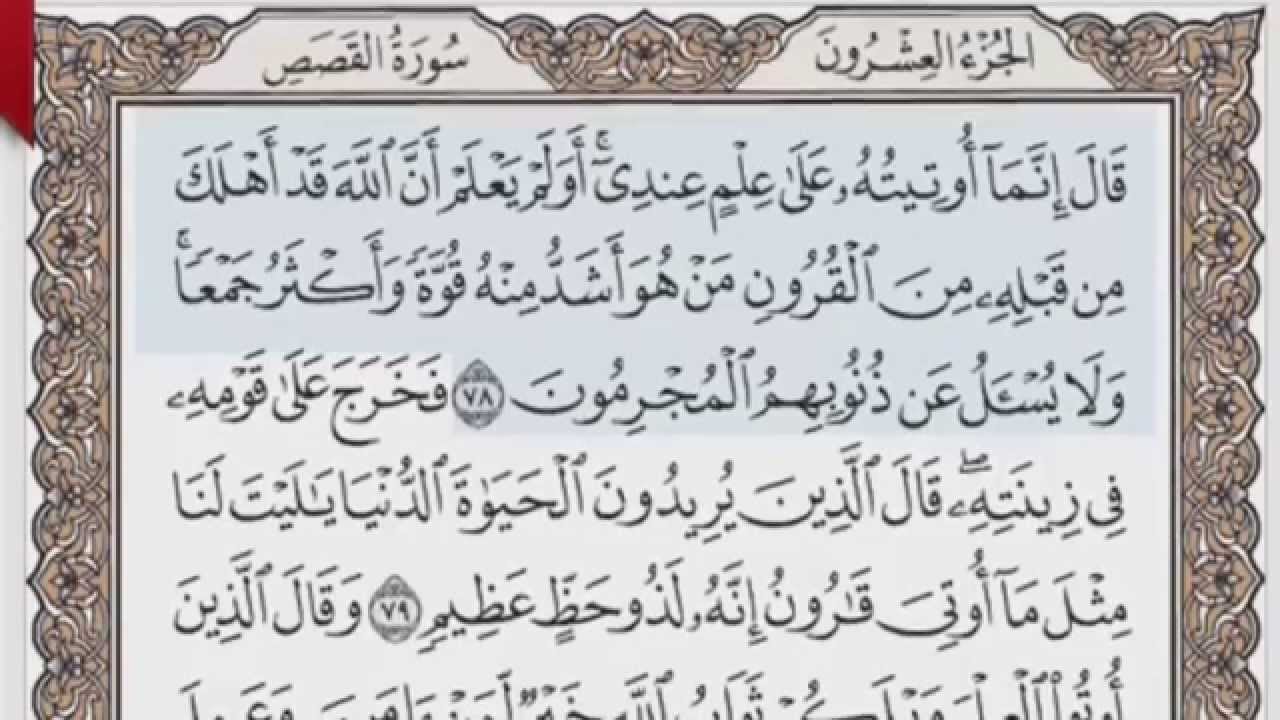 الجُزْءُ العِشْرُونَ
سُورَةُ القَصَصِ
قَالَ إِنَّمَآ أُوتِيتُهُۥ عَلَىٰ عِلْمٍ عِندِىٓ ۚ أَوَلَمْ يَعْلَمْ أَنَّ ٱللَّهَ قَدْ أَهْلَكَ
مِن قَبْلِهِۦ مِنَ ٱلْقُرُونِ مَنْ هُوَ أَشَدُّ مِنْهُ قُوَّةً وَأَكْثَرُ جَمْعًا ۚ
وَلَا يُسْـَٔلُ عَن ذُنُوبِهِمُ ٱلْمُجْرِمُونَ ٧٨ فَخَرَجَ عَلَىٰ قَوْمِهِۦ
فِى زِينَتِهِۦ ۖ قَالَ ٱلَّذِينَ يُرِيدُونَ ٱلْحَيَوٰةَ ٱلدُّنْيَا يَٰلَيْتَ لَنَا
مِثْلَ مَآ أُوتِىَ قَٰرُونُ إِنَّهُۥ لَذُو حَظٍّ عَظِيمٍ ٧٩ وَقَالَ ٱلَّذِينَ